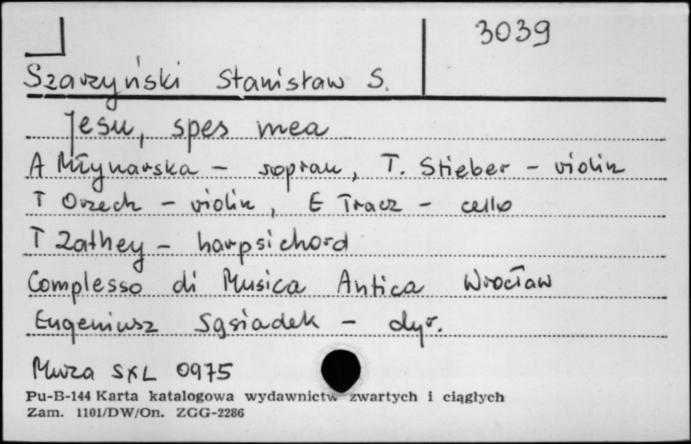 3039
Szarzyński Stanisław S.
Jesu, spes mea
A Młynarska – sopran, T. Stieber – violin
T Orzech – violin, E Tracz – cello
T Zathey – harpsichord
Complesso di Musica Antica Wrocław
Eugeniusz Sąsiadek – dyr.
Muza SXL 0975
Pu-B-144 Karta katalogowa wydawnictw zwartych i ciągłych
Zam. 1101/DW/On. ZGG-2286